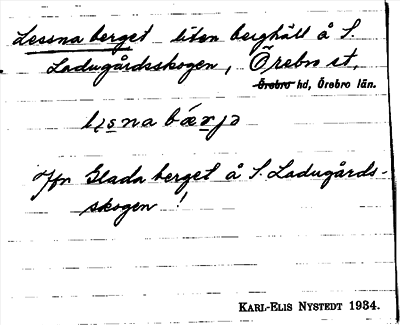 Lessna berget liten berghäll å S.
Ladugårdsskogen, Örebro st,
Örebro hd, Örebro län.
Jfr Glada berget å S. Ladugårds-
skogen!
KARL-ELIS NYSTEDT 1934.